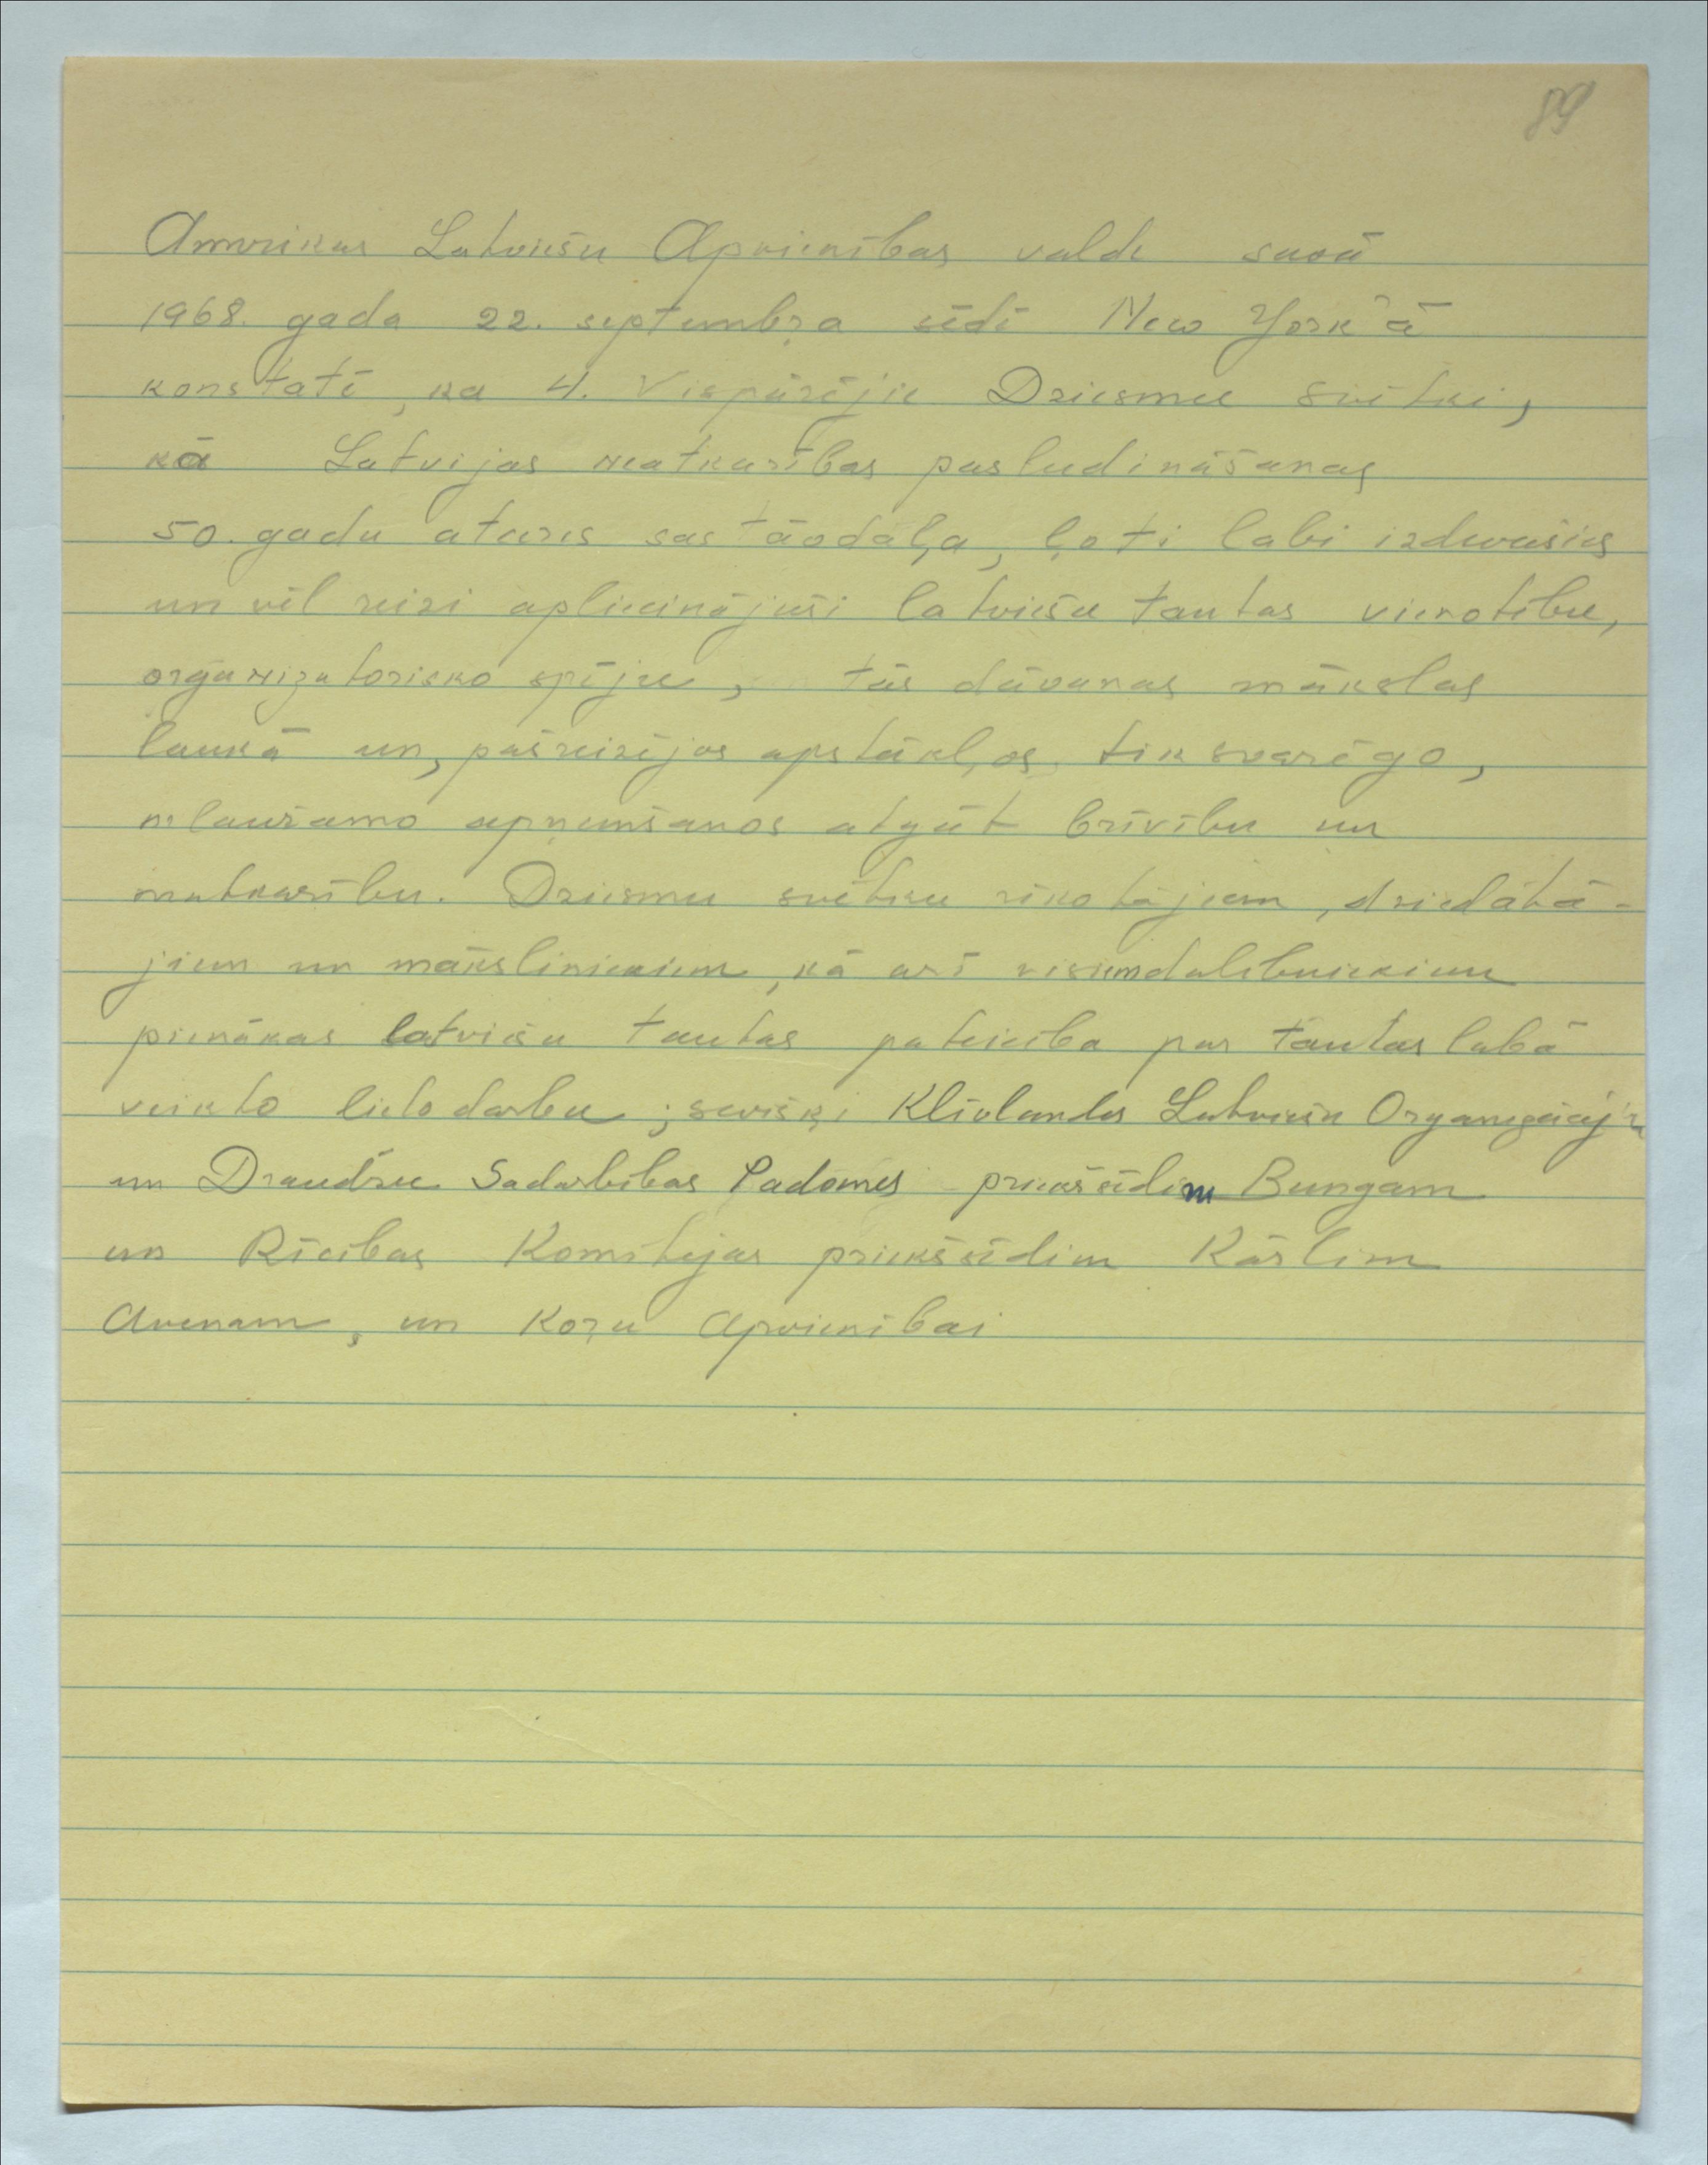 89
Amerikas Latviešu Apvienības valde savā
1968. gada 22. septembŗa sēdē New York'ā
konstatē, ka 4. Vispārējie Dziesmu svētki,
kā Latvijas neatkarības pasludināšanas
50. gadu atceres sastāvdaļa, ļoti labi izdevušies
un vēl reizi apliecinājuši latviešu tautas vienotību,
organizatorisko spēju, tās dāvanas mākslas
laukā un, pašreizējos apstākļos, tik svarīgo,
nelaužamo apņemšanos atgūt brīvību un
neatkarību. Dziesmu svētku rīkotājiem, dziedātā-
jiem un māksliniekiem, kā arī visiem dalībniekiem
pienākas latviešu tautas pateicība par tautas labā
veikto lielo darbu; sevišķi Klīvlandes Latviešu Organizāciju
un Draudžu Sadarbības Padomes priekšsēdim Bungam
un Rīcības Komitejas priekšsēdim Kārlim
Avenam, un Koŗu Apvienībai